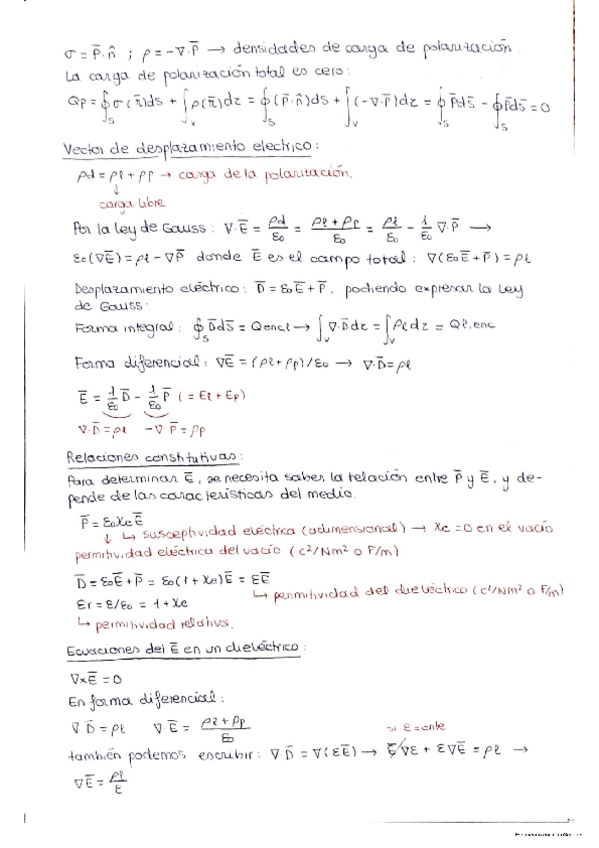 σ = P̄·n̂ ; ρ = -∇·P̄ → densidades de carga de polarización
La carga de polarización total es cero:
Qp = ∮_S σ(r̄)ds + ∫_V ρ(r̄)dz = ∮_S (P̄·n̂)ds + ∫_V (-∇·P̄)dz = ∮_S P̄ds̄ - ∮_S P̄ds̄ = 0
Vector de desplazamiento electrico:
ρd = ρl + ρp → carga de la polarización.
↓
carga libre
Por la ley de Gauss: ∇·Ē = ρd/ε0 = (ρl + ρp)/ε0 = ρl/ε0 - 1/ε0 ∇·P̄ →
ε0(∇Ē) = ρl - ∇P̄ donde Ē es el campo total: ∇(ε0Ē + P̄) = ρl
Desplazamiento eléctrico: D̄ = ε0Ē + P̄, podiendo expresar la Ley
de Gauss:
Forma integral: ∮_S D̄ds̄ = Qencl → ∫_V ∇·D̄dz = ∫_V ρl dz = Ql,enc
Forma diferencial: ∇Ē = (ρl + ρp)/ε0 → ∇·D̄ = ρl
Ē = 1/ε0 D̄ - 1/ε0 P̄ (= El + Ep)
∇·D̄ = ρl -∇P̄ = ρp
Relaciones constitutivas:
Para determinar Ē, se necesita saber la relación entre P̄ y Ē, y de-
pende de las características del medio.
P̄ = ε0χeĒ
↓ ↳ susceptividad eléctrica (adimensional) → χe = 0 en el vacío
permitividad eléctrica del vacío (c²/Nm² o F/m)
D̄ = ε0Ē + P̄ = ε0(1 + χe)Ē = εĒ
↳ permitividad del dieléctrico (c²/Nm² o F/m)
εr = ε/ε0 = 1 + χe
↳ permitividad relativa.
Ecuaciones del Ē en un dieléctrico:
∇×Ē = 0
En forma diferencial:
∇D̄ = ρl ∇·Ē = (ρl + ρp)/ε0
si ε = cnte
también podemos escribir: ∇D̄ = ∇(εĒ) → Ē∇ε + ε∇Ē = ρl →
∇Ē = ρl/ε